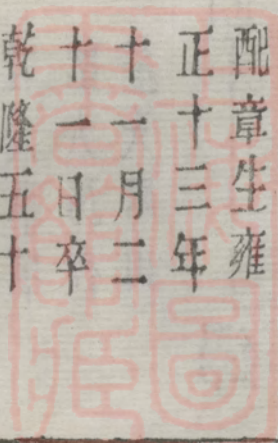 配章生雍
正十三年
十一月二
十一日卒
乾隆五十